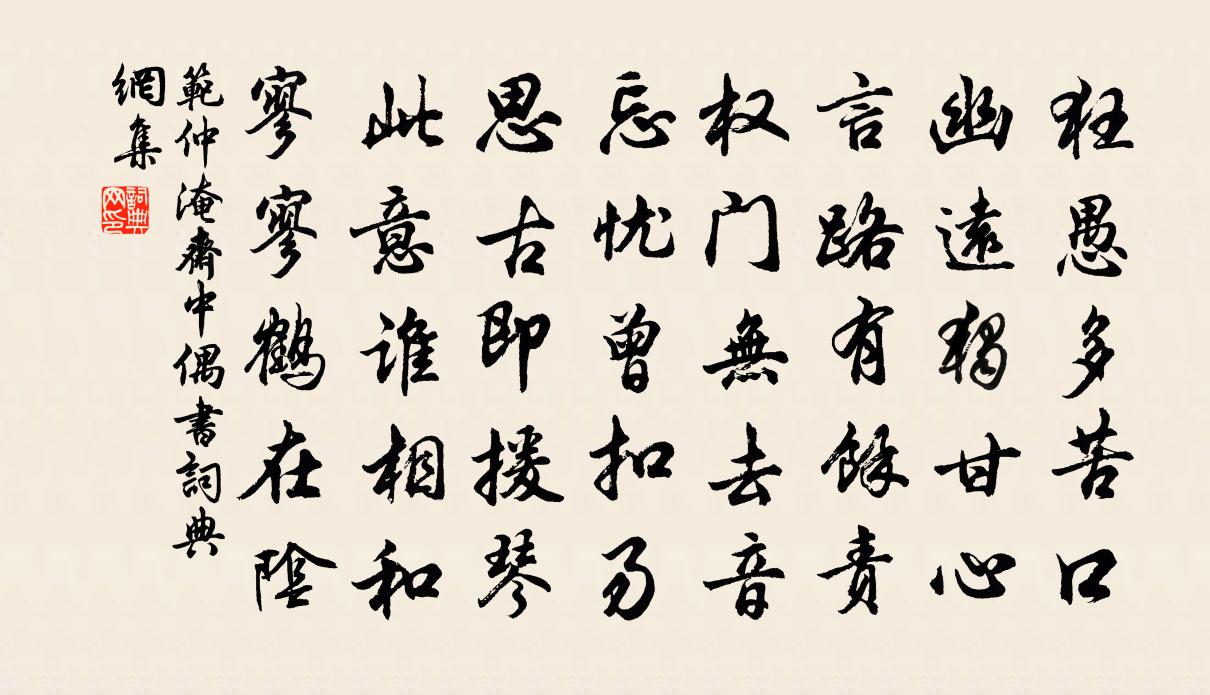 狂愚多苦口
幽遠獨甘心
言路有餘責
权门無去音
忘忧曾扣易
思古即援琴
此意誰相和
寥寥鶴在陰
範仲淹齋中偶書詞典
網集
詞典
网印